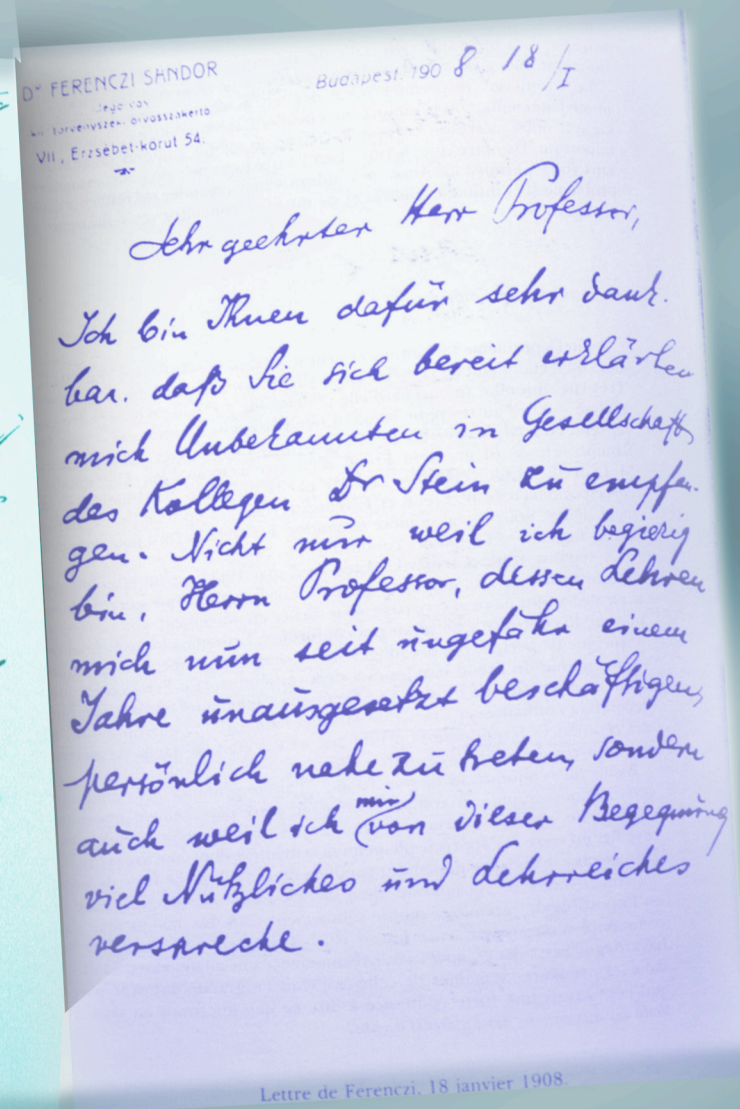 Dr FERENCZI SÁNDOR
ideg-orvos
kir. törvényszéki orvosszakértő
VII., Erzsébet-körut 54.
Budapest, 1908 18/I
Sehr geehrter Herr Professor,
Ich bin Ihnen dafür sehr dank-
bar, daß Sie sich bereit erklärten
mich Unbekannten in Gesellschaft
des Kollegen Dr Stein zu empfan-
gen. Nicht nur weil ich begierig
bin, Herrn Professor, dessen Lehren
mich nun seit ungefähr einem
Jahre unausgesetzt beschäftigen,
persönlich nahe zu treten, sondern
auch weil ich mir von dieser Begegnung
viel Nützliches und Lehrreiches
verspreche.
Lettre de Ferenczi, 18 janvier 1908.